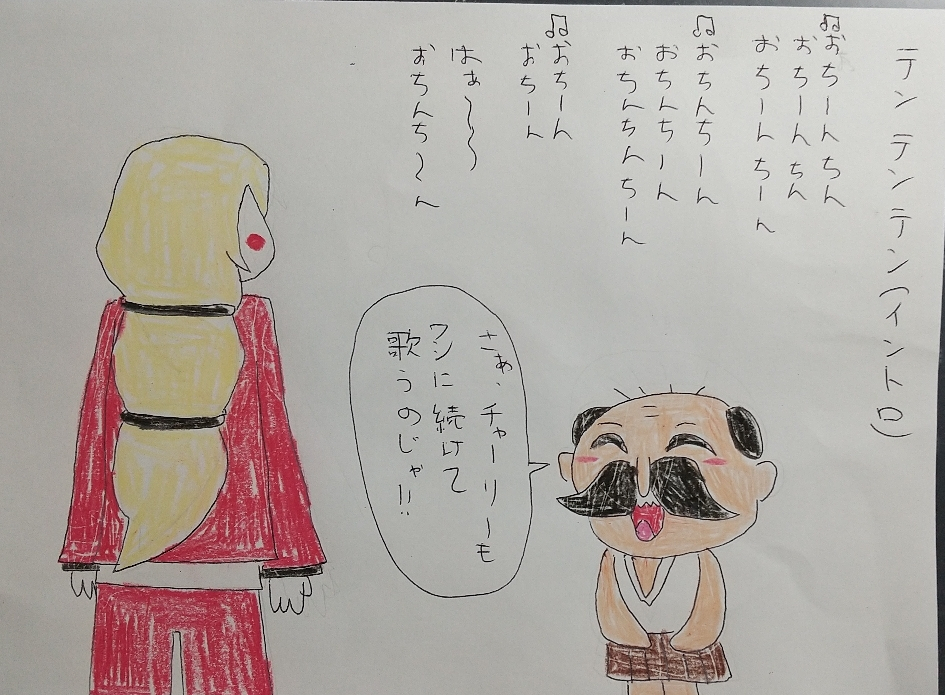 テンテンテンテン(イントロ)
♫おちーんちん
おちーんちん
おちーんちーん
♫おちんちーん
おちんちーん
おちんちんちーん
♫おちーん
おちーん
はぁ〜〜〜
おちんち〜ん
さぁ、チャーリーも
ワシに続けて
歌うのじゃ!!